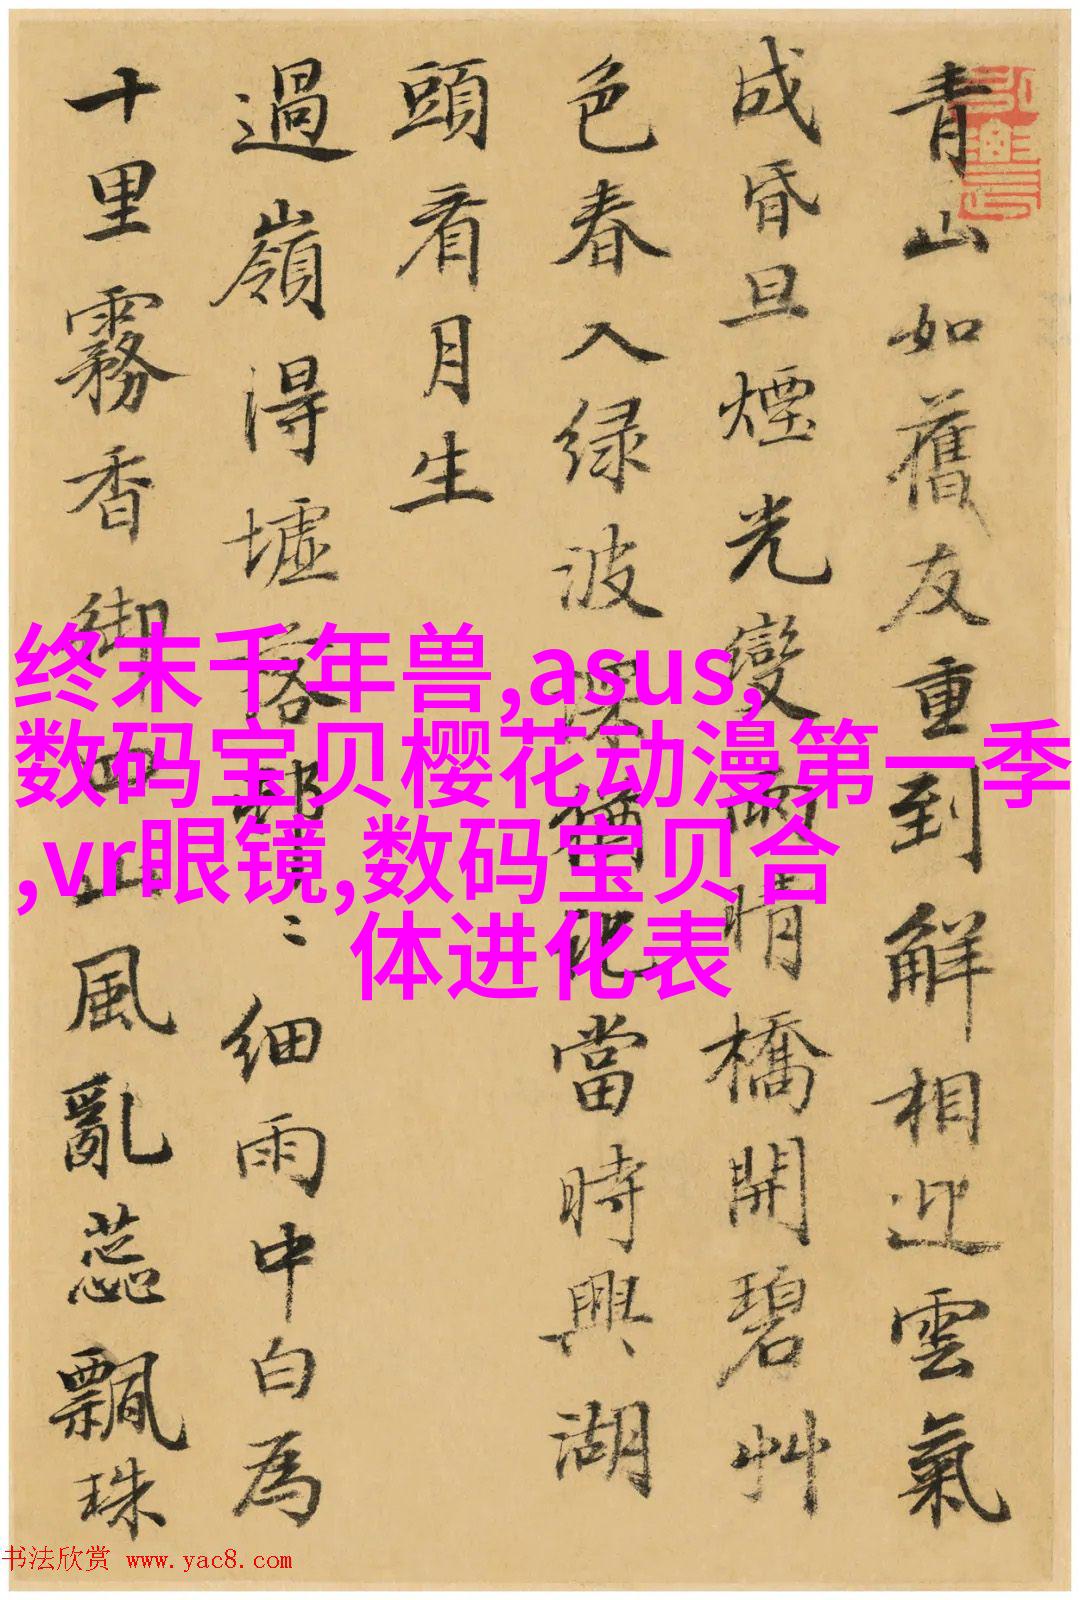 青山如舊友重到解相迎雲氣
成昏旦煙光變雨晴橋開碧艸
色春入绿波深稱當時興湖
頭看月生
過嶺得墟落細雨中白為
十里霧香御四山風亂蕊飄珠
终末千年兽,asus,
数码宝贝樱花动漫第一季
,vr眼镜,数码宝贝合
体进化表
书法欣赏 www.yac8.com